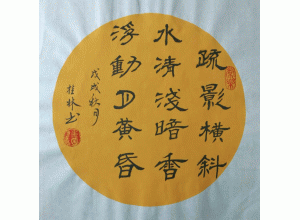 疏影橫斜
水清淺暗香
浮動月黃昏
戊戌秋月
桂林书